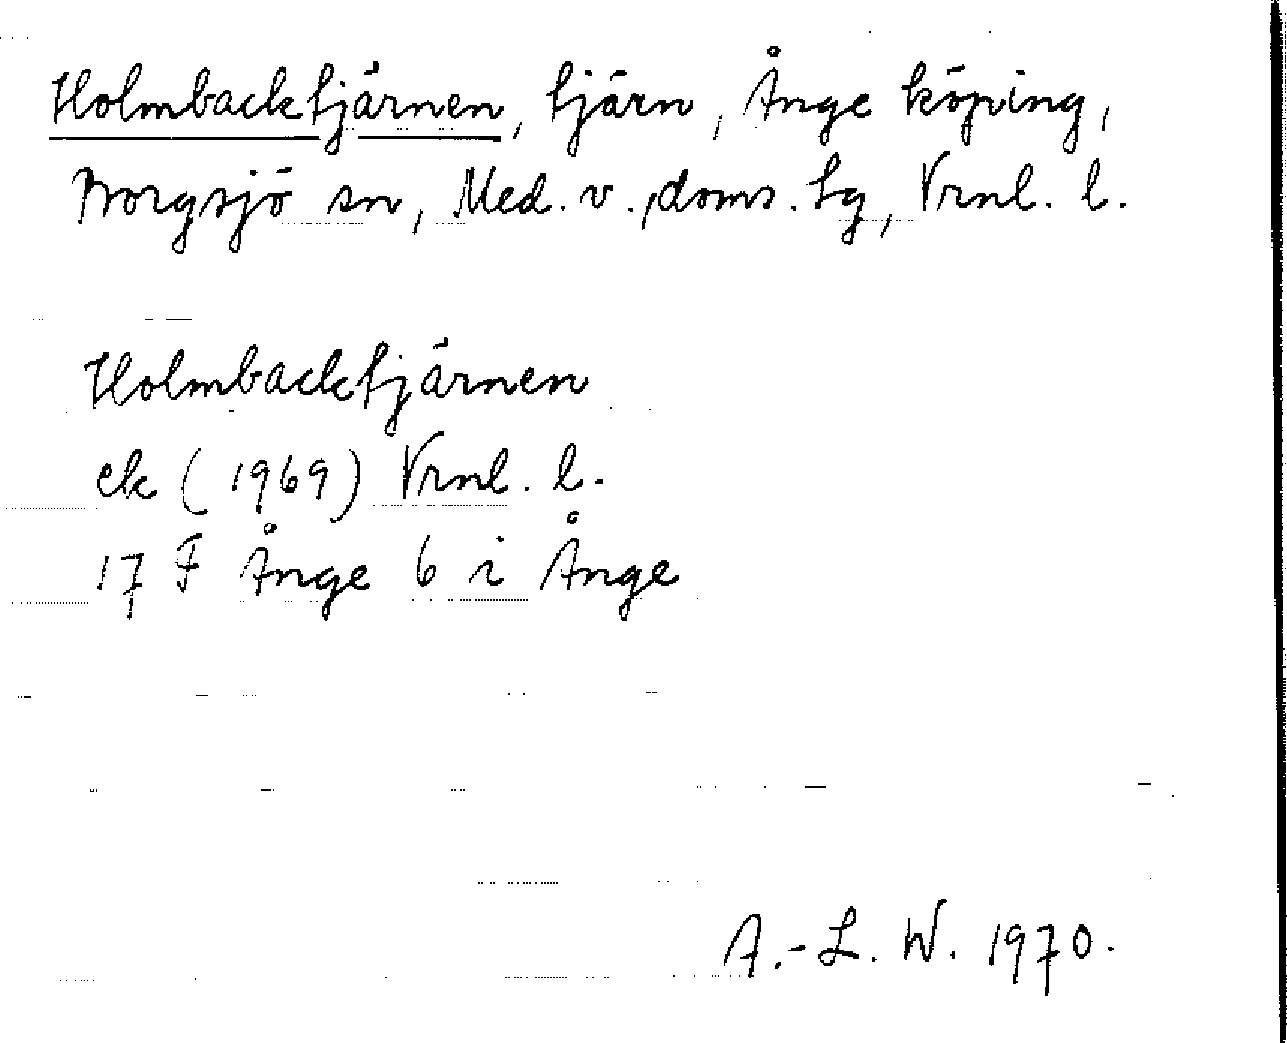 Holmbacktjärnen, tjärn, Ånge köping,
Borgsjö sn, Med. v., doms. tg, Vrnl. l.
Holmbacktjärnen
ek (1969) Vrnl. l.
17 F Ånge 6 i Ånge
A.-L. W. 1970.